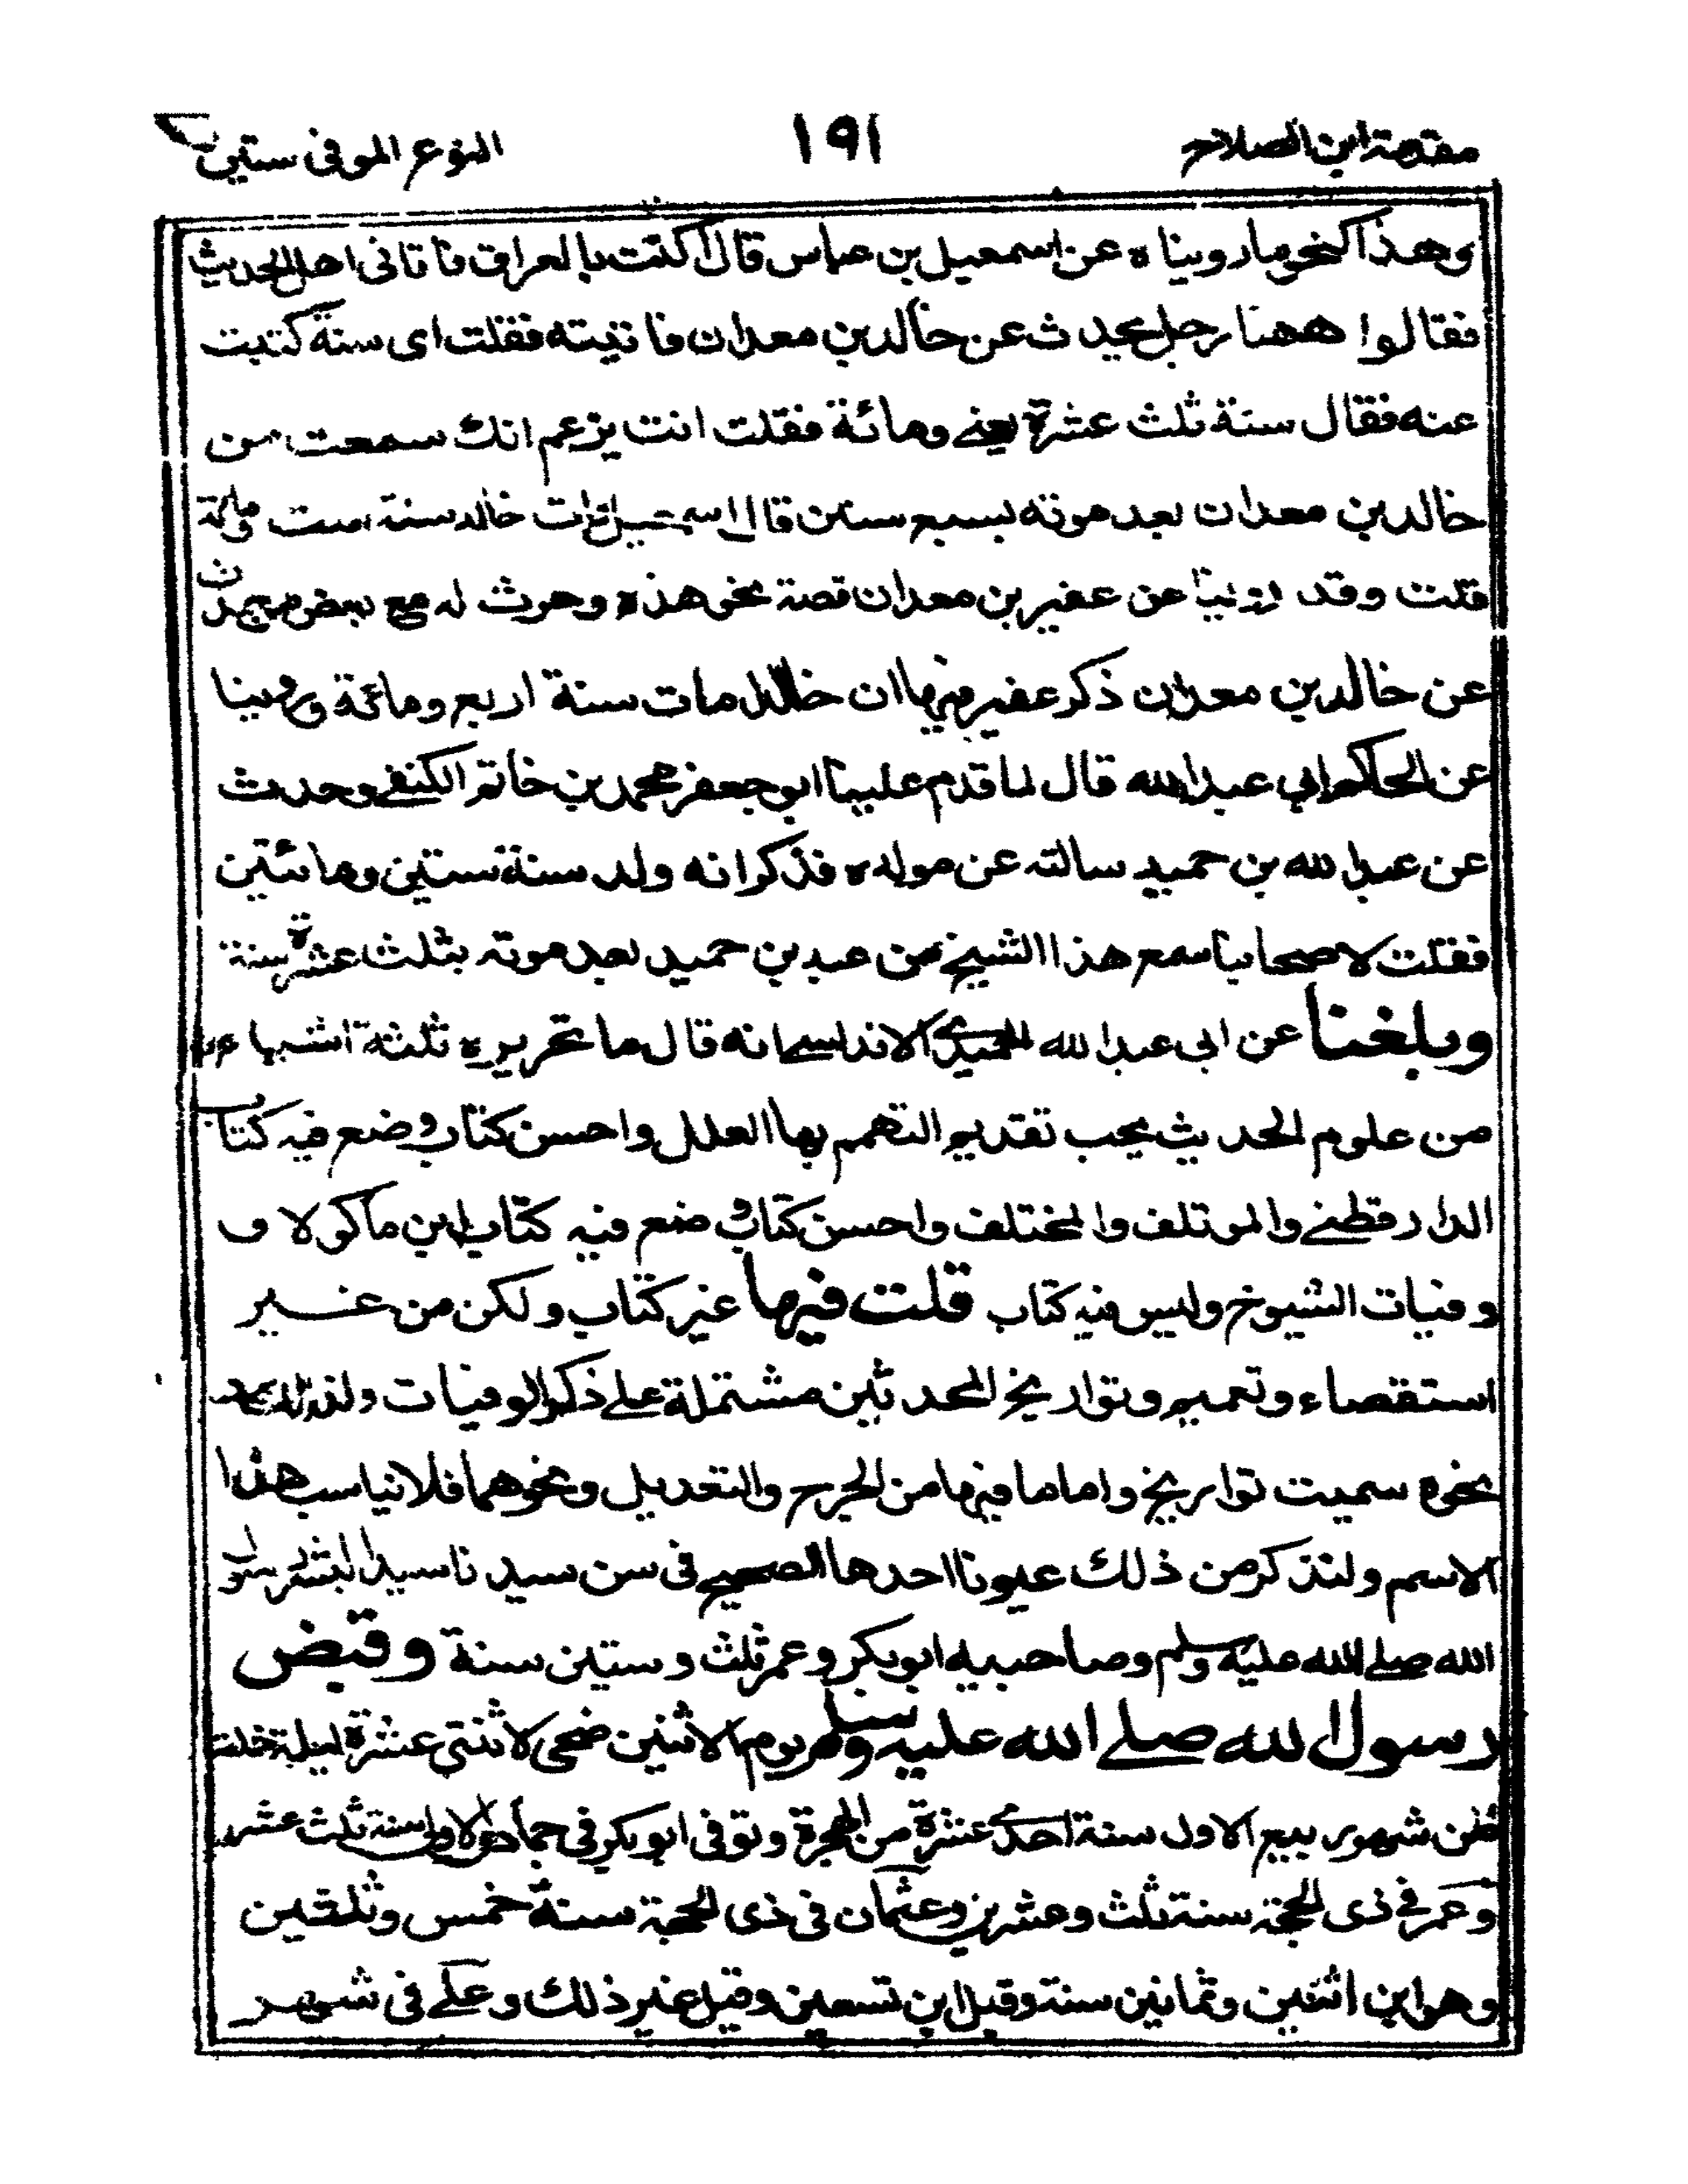 مقدمة ابن الصلاح
١٩١
النوع الموفى ستين
وهذا كنحو ما رويناه عن اسمعيل بن عياس قال كنت بالعراق فاتانى اهل الحديث
فقالوا ههنا رجل يحدث عن خالد بن معدان فاتيته فقلت اى سنة كتبت
عنه فقال سنة ثلث عشرة يعنے ومائة فقلت انت يزعم انك سمعت من
خالد بن معدان بعد موته بسبع سنين قال اسمعيل مات خالد سنة ست ومائة
قلت وقد روينا عن عفير بن معدان قصة نحو هذه وجرت له مع بعض من حدث
عن خالد بن معدان ذكر عفير فيها ان خالدا مات سنة اربع ومائة وروينا
عن الحاكم ابي عبد الله قال لما قدم علينا ابو جعفر محمد بن حاتم الكشے وحدث
عن عبد الله بن حميد سالته عن مولده فذكر انه ولد سنة ستين ومائتين
فقلت لاصحابنا سمع هذا الشيخ من عبد بن حميد بعد موته بثلث عشرة سنة
وبلغنا عن ابى عبد الله الحميدى الاندلسے انه قال ما تحريره ثلثة اشياء
من علوم الحديث يجب تقديم التهمم بها العلل واحسن كتاب وضع فيه كتاب
الدارقطنے والموتلف والمختلف واحسن كتاب وضع فيه كتاب ابن ماكولا و
وفيات الشيوخ وليس فيه كتاب قلت فيها غير كتاب ولكن من غير
استقصاء وتعميم وتواريخ المحدثين مشتملة علے ذكر الوفيات ولذلك
نحوه سميت تواريخ واما ما فيها من الجرح والتعديل ونحوهما فلا يناسب هذا
الاسم ولنذكر من ذلك عيونا احدها الصحيح فى سن سيدنا سيد البشر رسول
الله صلے الله عليه وسلم وصاحبيه ابو بكر وعمر ثلث وستين سنة وقبض
رسول الله صلے الله عليه وسلم يوم الاثنين ضحى لاثنتى عشرة ليلة خلت
من شهر ربيع الاول سنة احدى عشرة من الهجرة وتوفى ابو بكر فى جمادى الاولى سنة ثلث عشر
وعمر فے ذى الحجة سنة ثلث وعشرين وعثمان فى ذى الحجة سنة خمس وثلثين
وهو ابن اثنتين وثمانين سنة وقيل ابن تسعين وقيل غير ذلك وعلے فى شهر